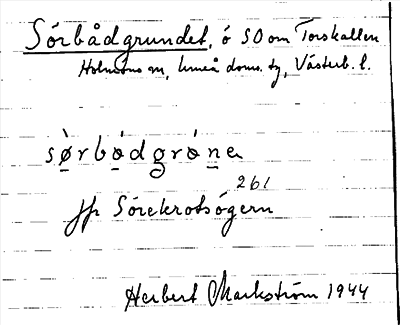 Sörbådgrundet, ö SO om Torskallen
Holmöns sn, Umeå doms. tg, Västerb. l.
sø̀rbòdgrò̱ne
261
jfr Sörekrotsögern
Herbert Markström 1944